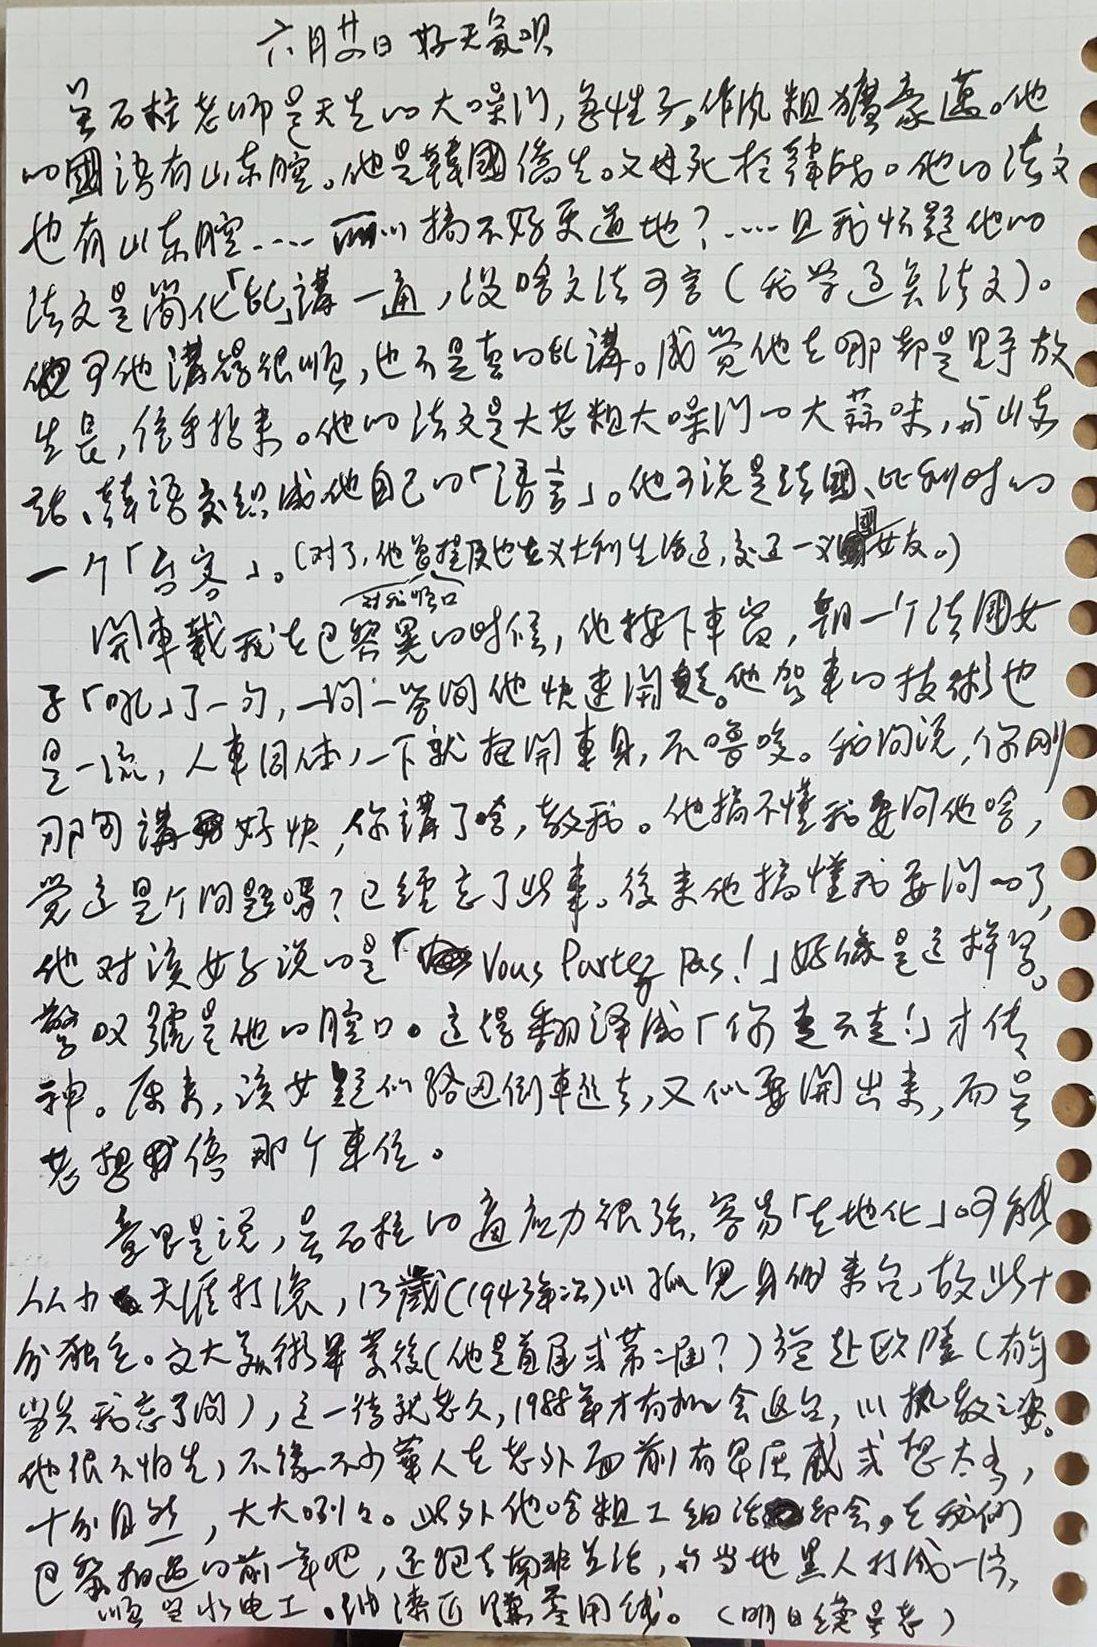 六月廿四日 好天氣唄
吳石柱老師是天生的大嗓門,急性子。作風粗獷豪邁。他
的國語有山东腔。他是韓國僑生。父母死於韓战。他的法文
也有山东腔……所以搞不好更道地?……且我怀疑他的
法文是简化「乱」講一通,没啥文法可言(我学过点法文)。
可他講得很順,也不是真的乱講。感觉他在哪都是野放
生長,信手拈来。他的法文是大老粗大嗓門的大蒜味,与山东
話、韓語交织成他自己的「語言」。他可说是法國、比利时的
一个「台客」。(对了,他曾提及他在义大利生活过,交过一义國女友。)
对我順口
開車載我在巴黎晃的时候,他按下車窗,朝一个法國女
子「吼」了一句,一问一答间他快速開走。他驾車的技術也
是一流,人車同体,一下就扭開車身,不嚕唆。我问说,你刚
那句講好快,你講了啥,教我。他搞不懂我要问他啥,
觉这是个问题嗎?已經忘了此事。後来他搞懂我要问的了,
他对该女子说的是「Vous Partez Pas!」好像是这样子。
警叹號是他的腔口。这得翻译成「你走不走!」才传
神。原来,该女疑似路边倒車进去,又似要開出来,而吳
老想停那个車位。
意思是说,吳石柱的適应力很強,容易「在地化」。可能
从小天涯打滾,13歲(1943年次)以孤兒身份来台,故此十
分独立。文大美術畢業後(他是首屆或第二屆?)旋赴欧陸(有
当兵?我忘了问),这一待就老久,1988年才有机会返台,以执教之姿。
他很不怕生,不像不少華人在老外面前有卑屈感或想太多,
十分自然,大大咧々。此外他啥粗工细活都会。在我们
巴黎相遇的前一年吧,还跑去南非生活,与当地黑人打成一片,
順当水电工。油漆匠賺零用钱。(明日续吳老)